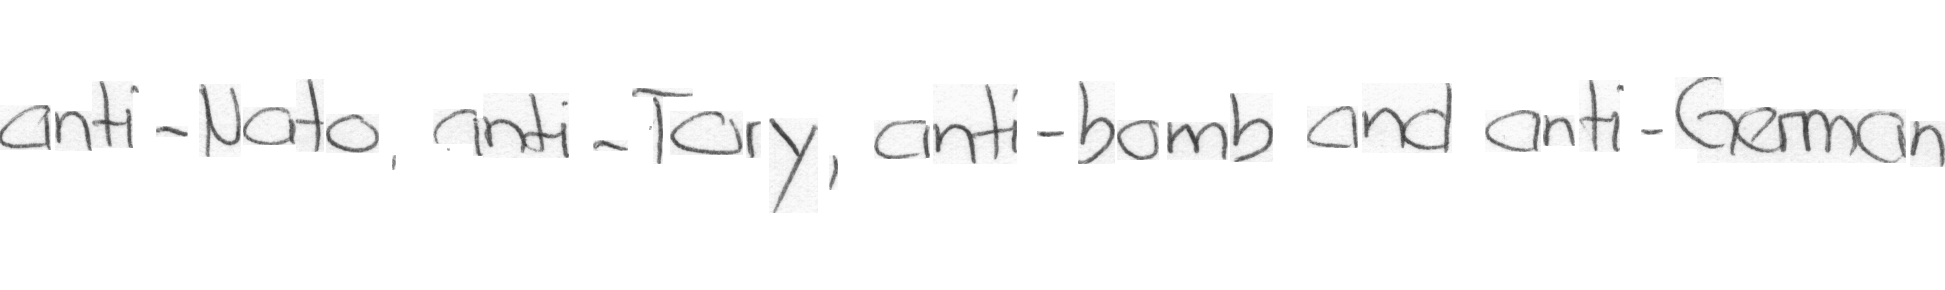 anti-Nato, anti-Tory, anti-bomb and anti-German